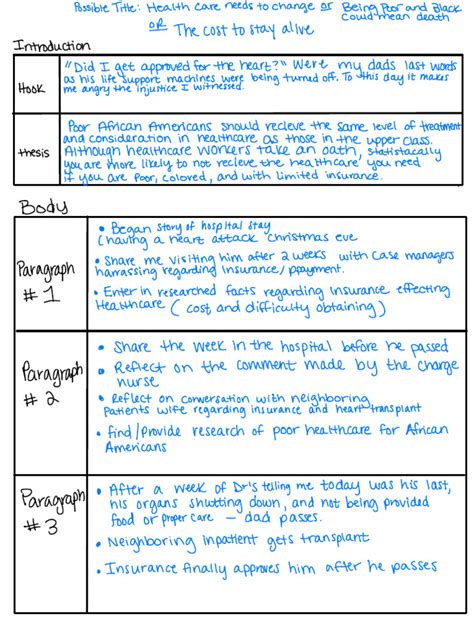 Possible Title: Health Care needs to change or Being Poor and Black
could mean death
OR The cost to stay alive
Introduction
Hook
"Did I get approved for the heart?" Were my dads last words
as his life support machines were being turned off. To this day it makes
me angry the injustice I witnessed.
thesis
Poor African Americans should recieve the same level of treatment
and consideration in healthcare as those in the upper class.
Although healthcare workers take an oath, statistacally
you are more likely to not recieve the healthcare you need
if you are poor, colored, and with limited insurance.
Body
Paragraph
#1
• Began story of hospital stay
(having a heart attack Christmas eve
• Share me visiting him after 2 weeks with case managers
harrassing regarding insurance/ppayment.
• Enter in researched facts regarding insurance effecting
Healthcare (cost and difficulty obtaining)
Paragraph
#2
• Share the week in the hospital before he passed
• Reflect on the comment made by the charge
nurse
• Reflect on conversation with neighboring
patients wife regarding insurance and heart transplant
• find/Provide research of poor healthcare for African
Americans
Paragraph
#3
• After a week of Dr's telling me today was his last,
his organs shutting down, and not being provided
food or proper care — dad passes.
• Neighboring inpatient gets transplant
• Insurance finally approves him after he passes